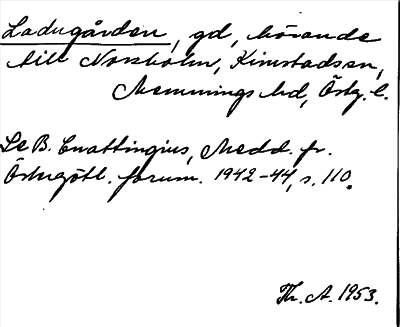 Ladugården, gd, hörande
till Norsholm, Kimstad sn,
Memmings hd, Östg. l.
Se B. Cnattingius, Medd. fr.
Östergötl. fornm. 1942-44, s. 110.
Th. A. 1953.